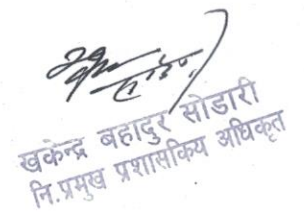 खकेन्द्र बहादुर सोडारी
नि.प्रमुख प्रशासकिय अधिकृत